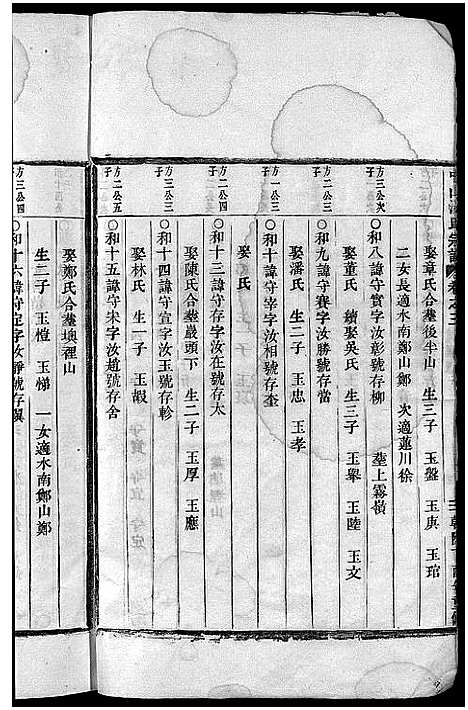 娶章氏合塟後半山 生三子 玉盤 玉典 玉琯
二女長適水南鄭山鄭 次適蓮川徐
方三公次子
〇和八諱守實字汝彰號存柳 塟上霧嶺
娶童氏 續娶吳氏 生三子 玉舉 玉陸 玉文
方一公三子
〇和九諱守賽字汝勝號存當
娶潘氏 生二子 玉忠 玉孝
方二公三子
〇和十諱守宰字汝相號存奎
娶 氏
方二公四子
〇和十三諱守存字汝在號存太
娶陳氏合塟巖頭下 生二子 玉厚 玉應
方三公三子
〇和十四諱守宣字汝玉號存軫
娶林氏 生一子 玉嘏
方二公五子
〇和十五諱守宋字汝趙號存舍
娶鄭氏合塟塢裡山
生二子 玉愷 玉悌 一女適水南鄭山鄭
方三公四子
〇和十六諱守定字汝靜號存翼